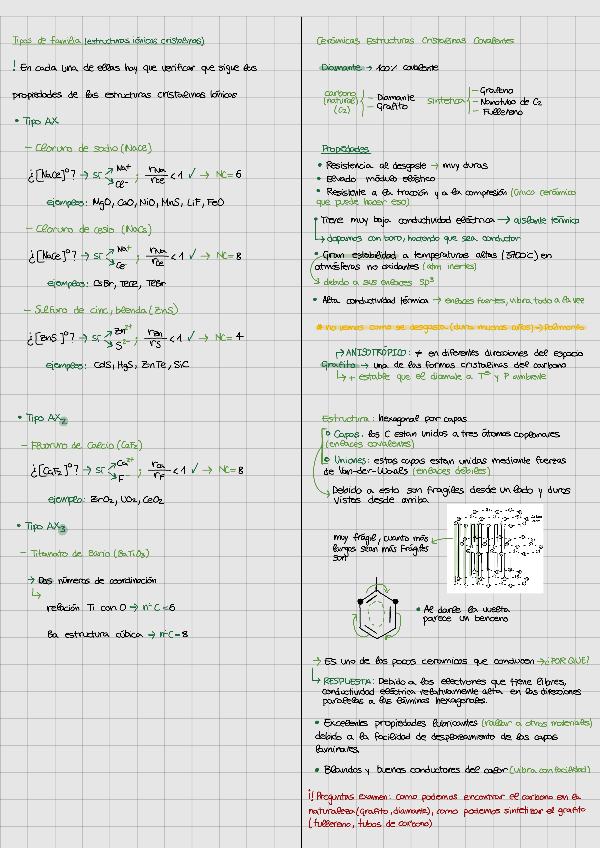 Tipos de familia (estructuras iónicas cristalinas)
! En cada una de ellas hay que verificar que sigue las
propiedades de las estructuras cristalinas iónicas
• Tipo AX
- Cloruro de sodio (NaCl)
¿[NaCl]⁰? → sí Na⁺ Cl⁻ ; rNa/rCl < 1 ✓ → NC = 6
ejemplos: MgO, CaO, NiO, MnS, LiF, FeO
- Cloruro de cesio (NaCs)
¿[NaCl]⁰? → sí Na⁺ Cl⁻ ; rNa/rCl < 1 ✓ → NC = 8
ejemplos: CsBr, TlCl, TlBr
- Sulfuro de cinc, blenda (ZnS)
¿[ZnS]⁰? → sí Zn²⁺ S²⁻ ; rZn/rS < 1 ✓ → NC = 4
ejemplos: CdS, HgS, ZnTe, SiC
• Tipo AX₂
- Fluoruro de Calcio (CaF₂)
¿[CaF₂]⁰? → sí Ca²⁺ F⁻ ; rCa/rF < 1 ✓ → NC = 8
ejemplo: ZrO₂, UO₂, CeO₂
• Tipo AX₃
- Titanato de Bario (BaTiO₃)
→ Dos números de coordinación
relación Ti con O → nºC = 6
La estructura cúbica → nºC = 8
Cerámicas Estructuras Cristalinas Covalentes
Diamante → 100% covalente
carbono (natural) (C₂) - Diamante - Grafito
sintético - Grafeno - Nanotubo de C₂ - Fullereno
Propiedades
• Resistencia al desgaste → muy duras
• Elevado módulo elástico
• Resistente a la tracción y a la compresión (único cerámico
que puede hacer eso)
• Tiene muy baja conductividad eléctrica → aislante térmico
↳ dopamos con boro, haciendo que sea conductor
• Gran estabilidad a temperaturas altas (3700ºC) en
atmósferas no oxidantes (atm inertes)
↳ debido a sus enlaces sp³
• Alta conductividad térmica → enlaces fuertes, vibra todo a la vez
# no vemos como se desgasta (dura muchos años) →
→ ANISOTRÓPICO: ≠ en diferentes direcciones del espacio
Grafito → una de las formas cristalinas del carbono
↳ + estable que el diamante a Tª y P ambiente
Estructura: hexagonal por capas
• Capas: los C están unidos a tres átomos coplanares
(enlaces covalentes)
• Uniones: estas capas están unidas mediante fuerzas
de Van-der-Waals (enlaces débiles)
→ Debido a esto son frágiles desde un lado y duros
vistos desde arriba
muy frágil, cuanto más
largos sean más frágiles
son
• Al darle la vuelta
parece un benceno
→ Es uno de los pocos cerámicos que conducen → ¿POR QUÉ?
↳ RESPUESTA: Debido a los electrones que tiene libres,
conductividad eléctrica relativamente alta en las direcciones
paralelas a las láminas hexagonales.
• Excelentes propiedades lubricantes (rallar a otros materiales)
debido a la facilidad de desplazamiento de las capas
laminares.
• Blandos y buenos conductores del calor (vibra con facilidad)
¡! Preguntas examen: como podemos encontrar el carbono en la
naturaleza (grafito, diamante), como podemos sintetizar el grafito
(fullereno, tubos de carbono)